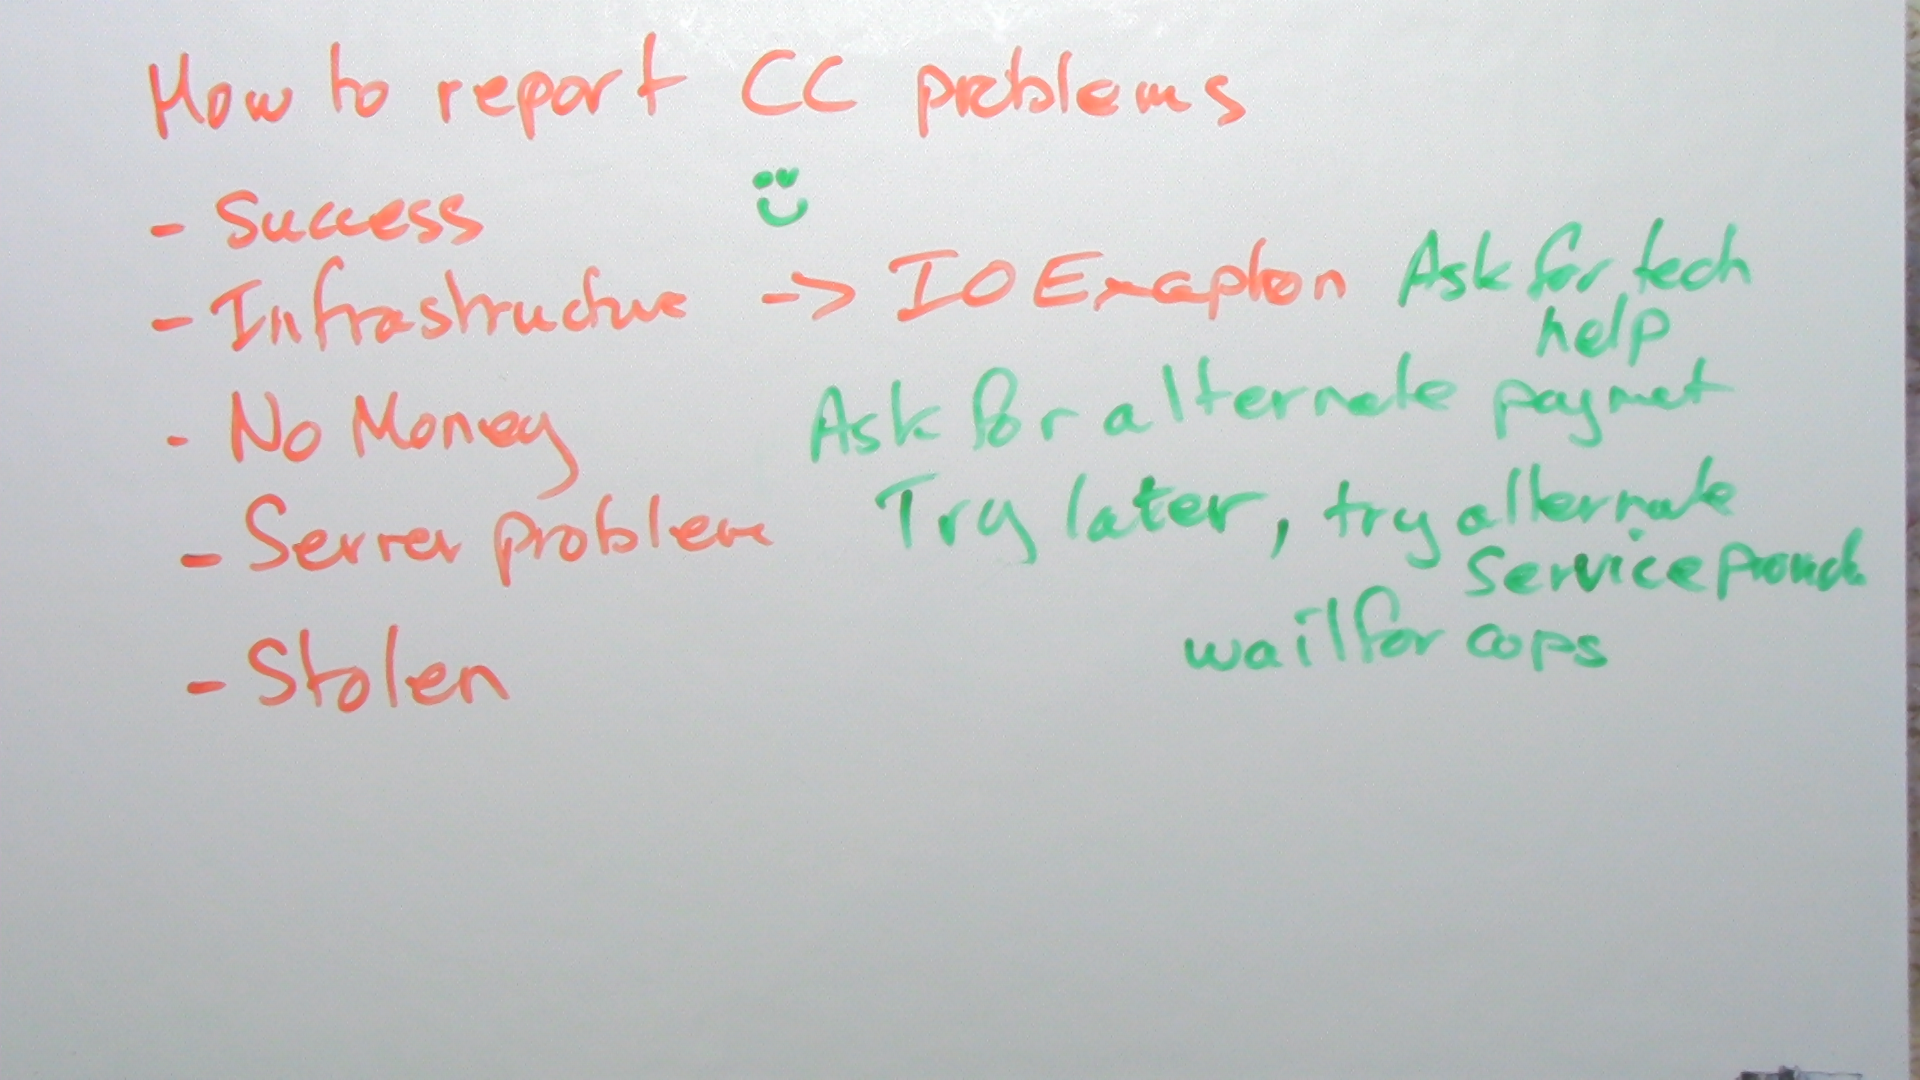 How to report CC problems
- Success
- Infrastructure -> IO Exception Ask for tech
help
- No Money Ask for alternate paymet
- Server problem Try later, try alternate
Service
- Stolen wait for cops